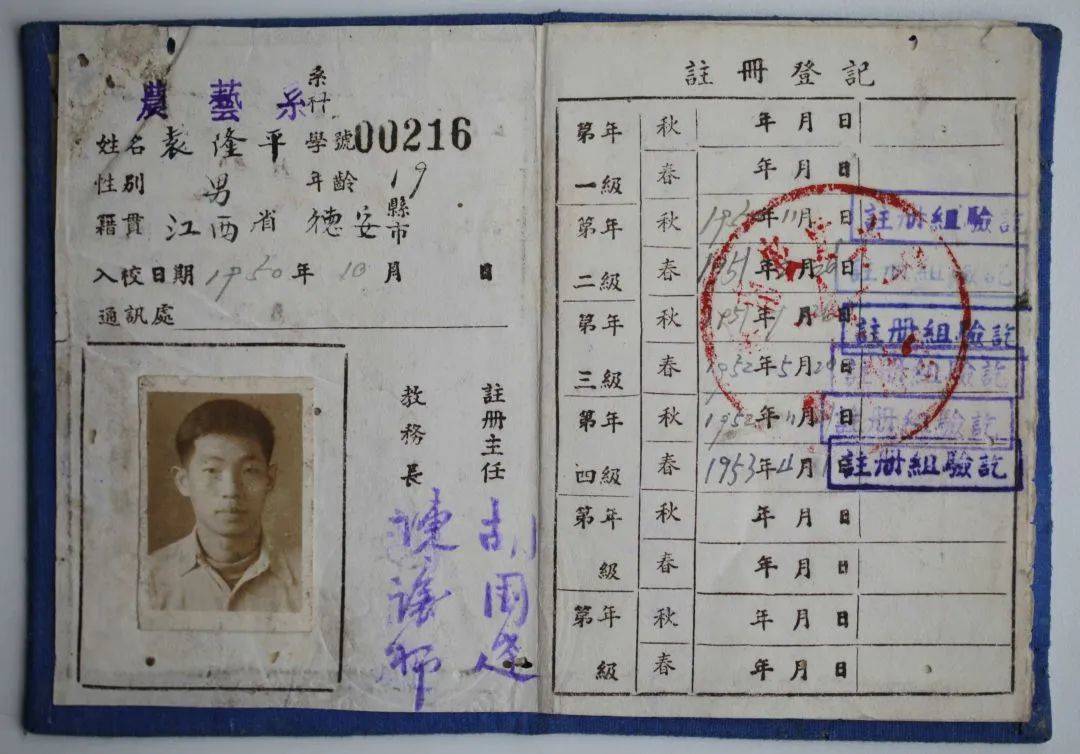 系科
農藝系
姓名 袁隆平 學號 00216
性别 男 年齡 19
籍貫 江西省 德安 縣市
入校日期 1950年 10月 日
通訊處
註册主任
教務長
註冊登記
第一年級 秋 年 月 日
春 年 月 日
第二年級 秋 195 年 11月 日 註册組驗訖
春 1951年 月 日 註册組驗訖
第三年級 秋 1951年 月 日 註册組驗訖
春 1952年 5月 日 註册組驗訖
第四年級 秋 1952年 11月 日 註册組驗訖
春 1953年 4月 註册組驗訖
第 年級 秋 年 月 日
春 年 月 日
第 年級 秋 年 月 日
春 年 月 日